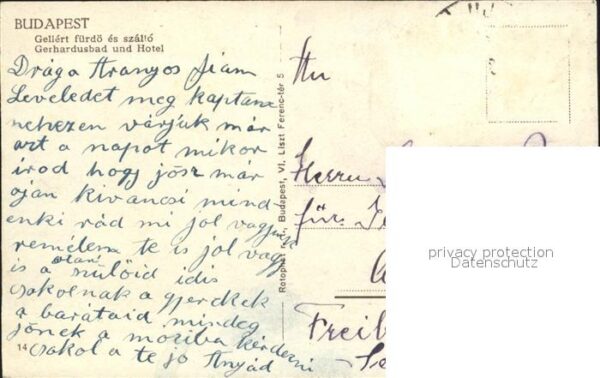 BUDAPEST
Gellért fürdő és szálló
Gerhardusbad und Hotel
Drága Aranyos fiam
Leveledet meg kaptam
nehezen várjuk már
azt a napot mikor
irod hogy jösz már
ojan kivancsi mind-
enki rád mi jol vagyunk
remélem te is jol vagy
is a szülöid is
csokolnak a gyerekek
a barátaid mindeg
jönek a moziba kérdezni
14 csokol a te jo Anyád
Budapest, VI, Liszt Ferenc-tér 5
An
Herrn
für
Freib
privacy protection
Datenschutz